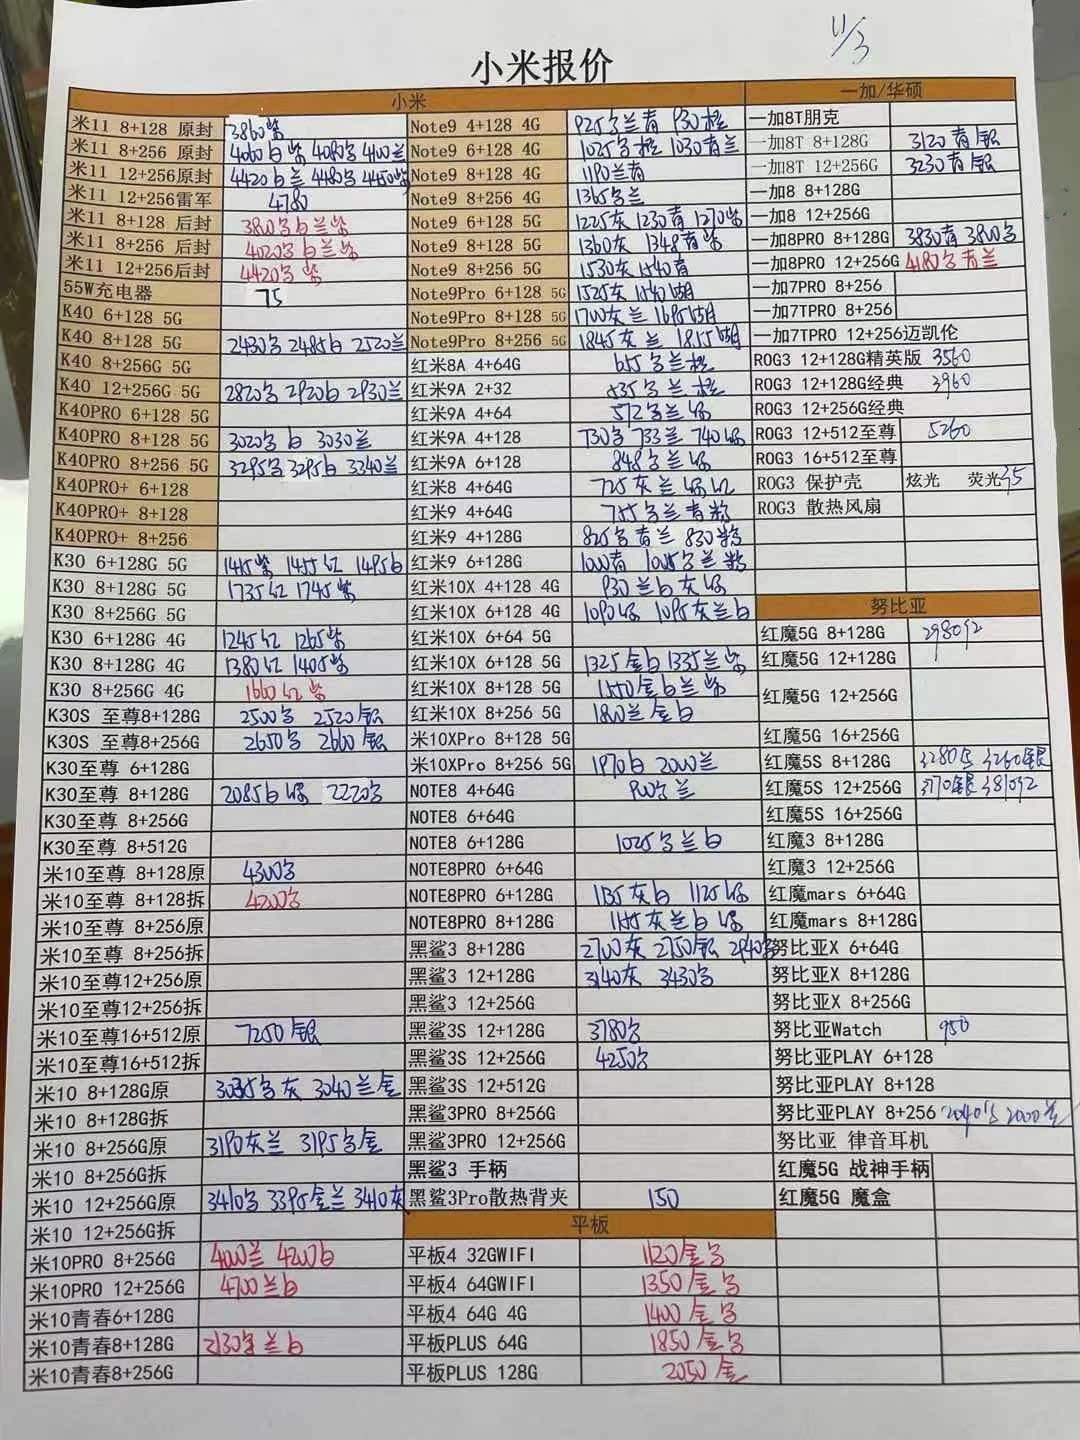 11/3
小米报价
小米
米11 8+128 原封 3860紫
米11 8+256 原封 4060白紫 4080字 4100兰
米11 12+256原封 4420白兰 4480字 4450紫
米11 12+256雷军 4780
米11 8+128 后封 3800字白兰紫
米11 8+256 后封 4020字白兰紫
米11 12+256后封 4420字 紫
55W充电器 75
K40 6+128 5G
K40 8+128 5G 2430字 2485白 2520兰
K40 8+256G 5G
K40 12+256G 5G 2820字 2920白 2930兰
K40PRO 6+128 5G
K40PRO 8+128 5G 3020字 白 3030兰
K40PRO 8+256 5G 3295字 3295白 3340兰
K40PRO+ 6+128
K40PRO+ 8+128
K40PRO+ 8+256
K30 6+128G 5G 1415紫 1455红 1495白
K30 8+128G 5G 1735红 1745紫
K30 8+256G 5G
K30 6+128G 4G 1245红 1265紫
K30 8+128G 4G 1380红 1405紫
K30 8+256G 4G 1660红紫
K30S 至尊8+128G 2500字 2520银
K30S 至尊8+256G 2650字 2660银
K30至尊 6+128G
K30至尊 8+128G 2085白绿 2220字
K30至尊 8+256G
K30至尊 8+512G
米10至尊 8+128原 4300字
米10至尊 8+128拆 4200字
米10至尊 8+256原
米10至尊 8+256拆
米10至尊12+256原
米10至尊12+256拆
米10至尊16+512原 7250银
米10至尊16+512拆
米10 8+128G原 字灰 3040兰金
米10 8+128G拆
米10 8+256G原 3190灰兰 3195字金
米10 8+256G拆
米10 12+256G原 3410字 3395金兰 3410灰
米10 12+256G拆
米10PRO 8+256G 4000兰 4200白
米10PRO 12+256G 4700兰白
米10青春6+128G
米10青春8+128G 2130字兰白
米10青春8+256G
Note9 4+128 4G 925字兰青 930橙
Note9 6+128 4G 1025字橙 1030青兰
Note9 8+128 4G 1190兰青
Note9 8+256 4G 1365字兰
Note9 6+128 5G 1225灰 1230青 1270紫
Note9 8+128 5G 1360灰 1348青紫
Note9 8+256 5G 1530灰 1540青
Note9Pro 6+128 5G 1525灰 1540湖
Note9Pro 8+128 5G 1700灰兰 1695湖
Note9Pro 8+256 5G 1845灰兰 1855湖
红米8A 4+64G 655字兰橙
红米9A 2+32 535字兰橙
红米9A 4+64 572字兰绿
红米9A 4+128 730字 733兰 740绿
红米9A 6+128 848字兰绿
红米8 4+64G 725灰兰绿红
红米9 4+64G 755字兰青粉
红米9 4+128G 825字青兰 830粉
红米9 6+128G 1000青 字兰粉
红米10X 4+128 4G 930兰白灰绿
红米10X 6+128 4G 1090绿 1095灰兰白
红米10X 6+64 5G
红米10X 6+128 5G 1325金白 1335兰紫
红米10X 8+128 5G 1550金白兰紫
红米10X 8+256 5G 1800兰金白
米10XPro 8+128 5G
米10XPro 8+256 5G 1970白 2000兰
NOTE8 4+64G 900字兰
NOTE8 6+64G
NOTE8 6+128G 1025字兰白
NOTE8PRO 6+64G
NOTE8PRO 6+128G 1135灰白 1125绿
NOTE8PRO 8+128G 1155灰兰白绿
黑鲨3 8+128G 2700灰 2750银 2940字
黑鲨3 12+128G 3140灰 3430字
黑鲨3 12+256G
黑鲨3S 12+128G 3780字
黑鲨3S 12+256G 4250字
黑鲨3S 12+512G
黑鲨3PRO 8+256G
黑鲨3PRO 12+256G
黑鲨3 手柄
黑鲨3Pro散热背夹 150
平板
平板4 32GWIFI 1120金字
平板4 64GWIFI 1350金字
平板4 64G 4G 1400金字
平板PLUS 64G 1850金字
平板PLUS 128G 2050金
一加/华硕
一加8T朋克
一加8T 8+128G 3120青银
一加8T 12+256G 3230青银
一加8 8+128G
一加8 12+256G
一加8PRO 8+128G 3830青 3800字
一加8PRO 12+256G 4180字青兰
一加7PRO 8+256
一加7TPRO 8+256
一加7TPRO 12+256迈凯伦
ROG3 12+128G精英版 3560
ROG3 12+128G经典 3960
ROG3 12+256G经典
ROG3 12+512至尊 5260
ROG3 16+512至尊
ROG3 保护壳 炫光 荧光35
ROG3 散热风扇
努比亚
红魔5G 8+128G 2980红
红魔5G 12+128G
红魔5G 12+256G
红魔5G 16+256G
红魔5S 8+128G 3280红 3260银
红魔5S 12+256G 3770银 3810红
红魔5S 16+256G
红魔3 8+128G
红魔3 12+256G
红魔mars 6+64G
红魔mars 8+128G
努比亚X 6+64G
努比亚X 8+128G
努比亚X 8+256G
努比亚Watch 950
努比亚PLAY 6+128
努比亚PLAY 8+128
努比亚PLAY 8+256 2040字 2000兰
努比亚 律音耳机
红魔5G 战神手柄
红魔5G 魔盒